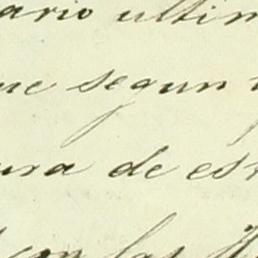 ario ultim
ue segun
ura de est
con las